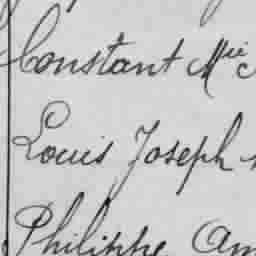 Constant Mie
Louis Joseph
Philippe Am